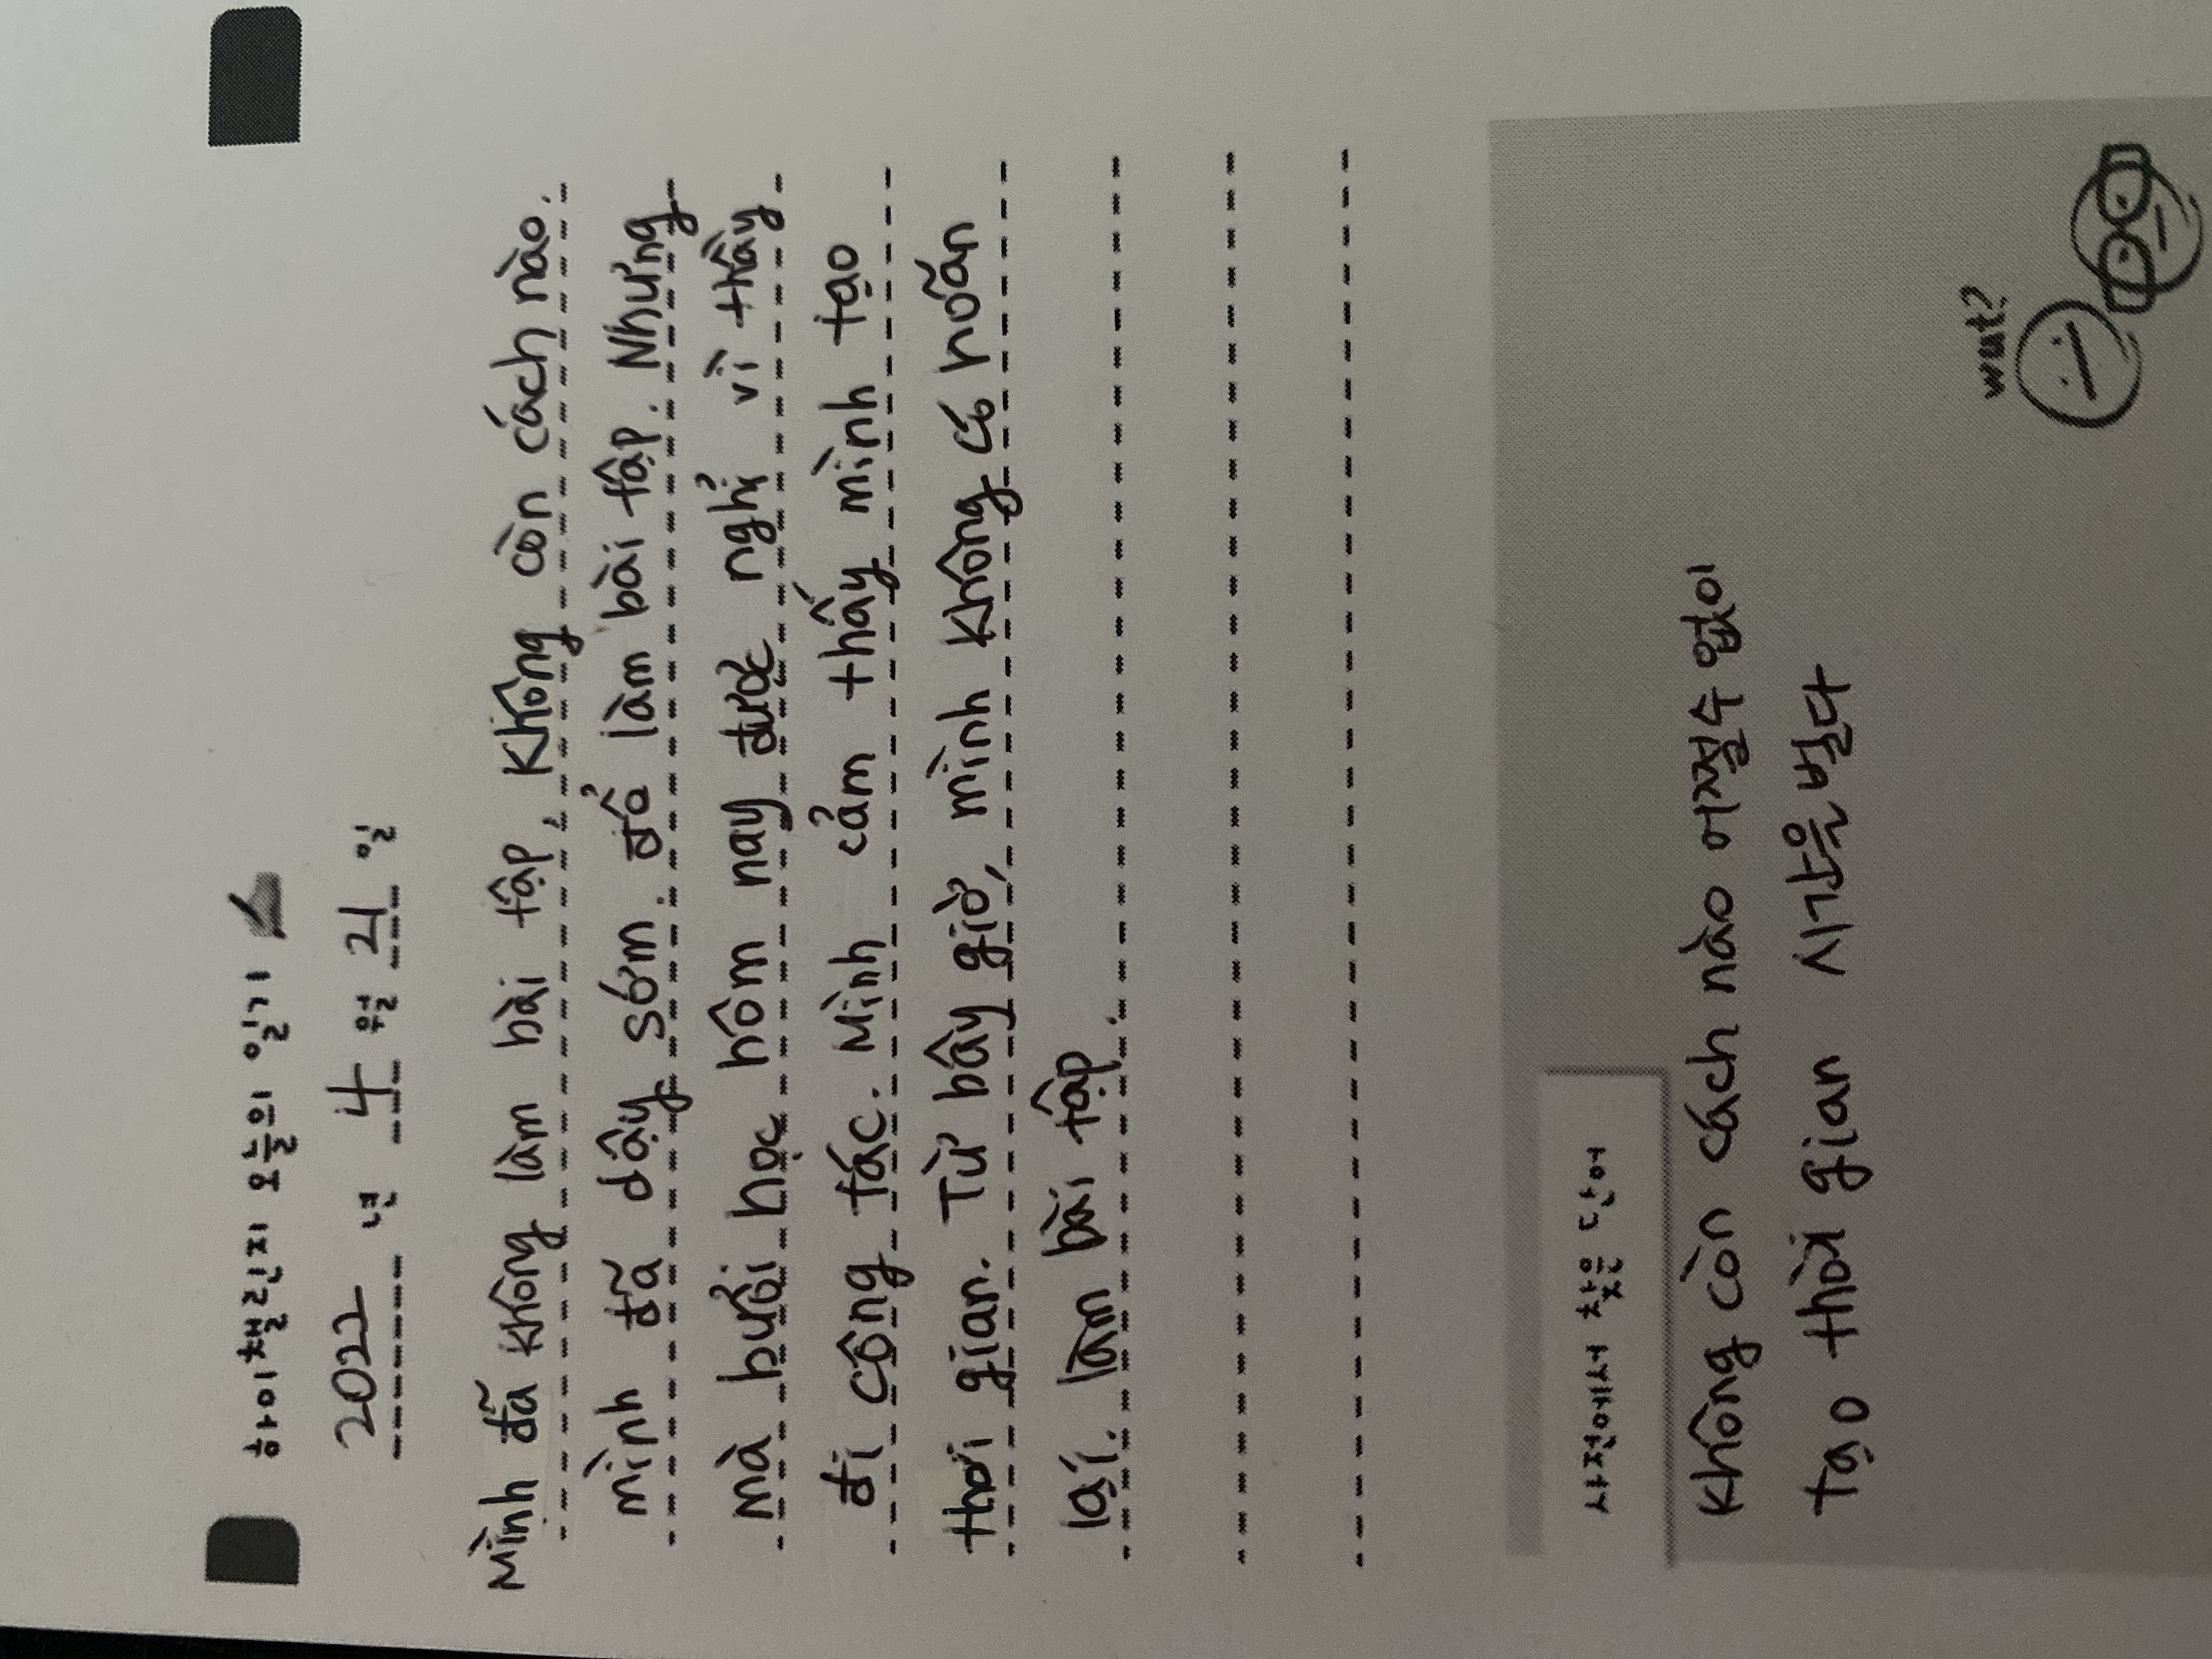 하이챌린지 오늘의 일기
2022 년 4 월 21 일
Mình đã không làm bài tập, không còn cách nào.
mình đã dậy sớm để làm bài tập. Nhưng
mà buổi học hôm nay được nghỉ vì thầy
đi công tác. Mình cảm thấy mình tạo
thơi gian. Từ bây giờ, mình không có hoãn
lại làm bài tập.
사전에서 찾은 단어
không còn cách nào 어쩔수 없이
tạo thời gian 시간을 벌다
wut?